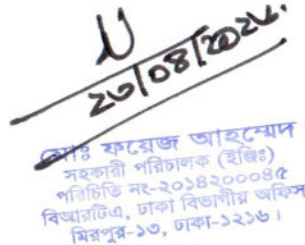 ২৩/০৪/২০২৬.
মোঃ ফয়েজ আহম্মেদ
সহকারী পরিচালক (ইঞ্জিঃ)
পরিচিতি নং-২০১৪২০০০৪৫
বিআরটিএ, ঢাকা বিভাগীয় অফিস
মিরপুর-১৩, ঢাকা-১২১৬।